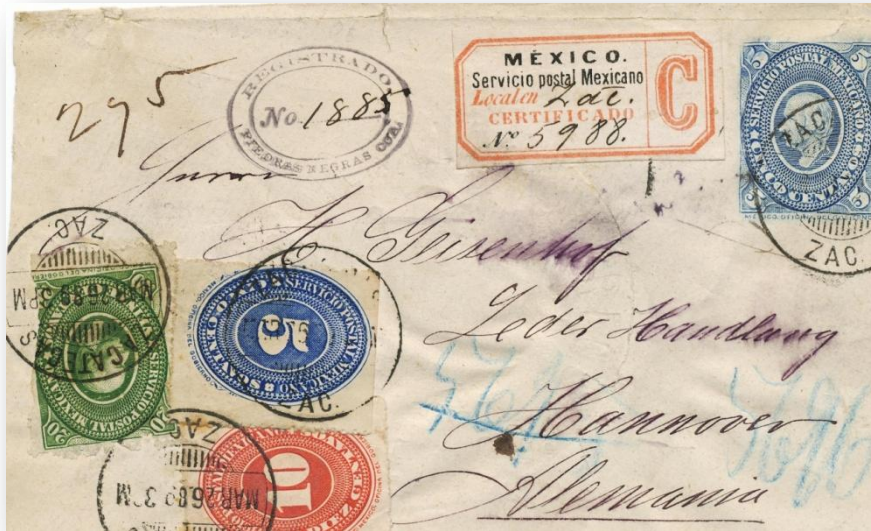 295
REGISTRADO
No. 1885
PIEDRAS NEGRAS COA.
MÉXICO.
Servicio postal Mexicano
Local en Zac.
CERTIFICADO
No 5988.
C
5 SERVICIO POSTAL MEXICANO 5
CINCO CENTAVOS
ZAC.
ZAC.
Herrn
H. Geisenhof
Leder Handlung
Hannover
Alemania
ZAC.
MAR 26 89 3 PM
ZACATECAS
SERVICIO POSTAL MEXICANO
20 20
SERVICIO POSTAL MEXICANO
5
CENTAVOS
ZAC.
ZAC.
MAR 26 89 3 PM
10
DIEZ CENTAVOS